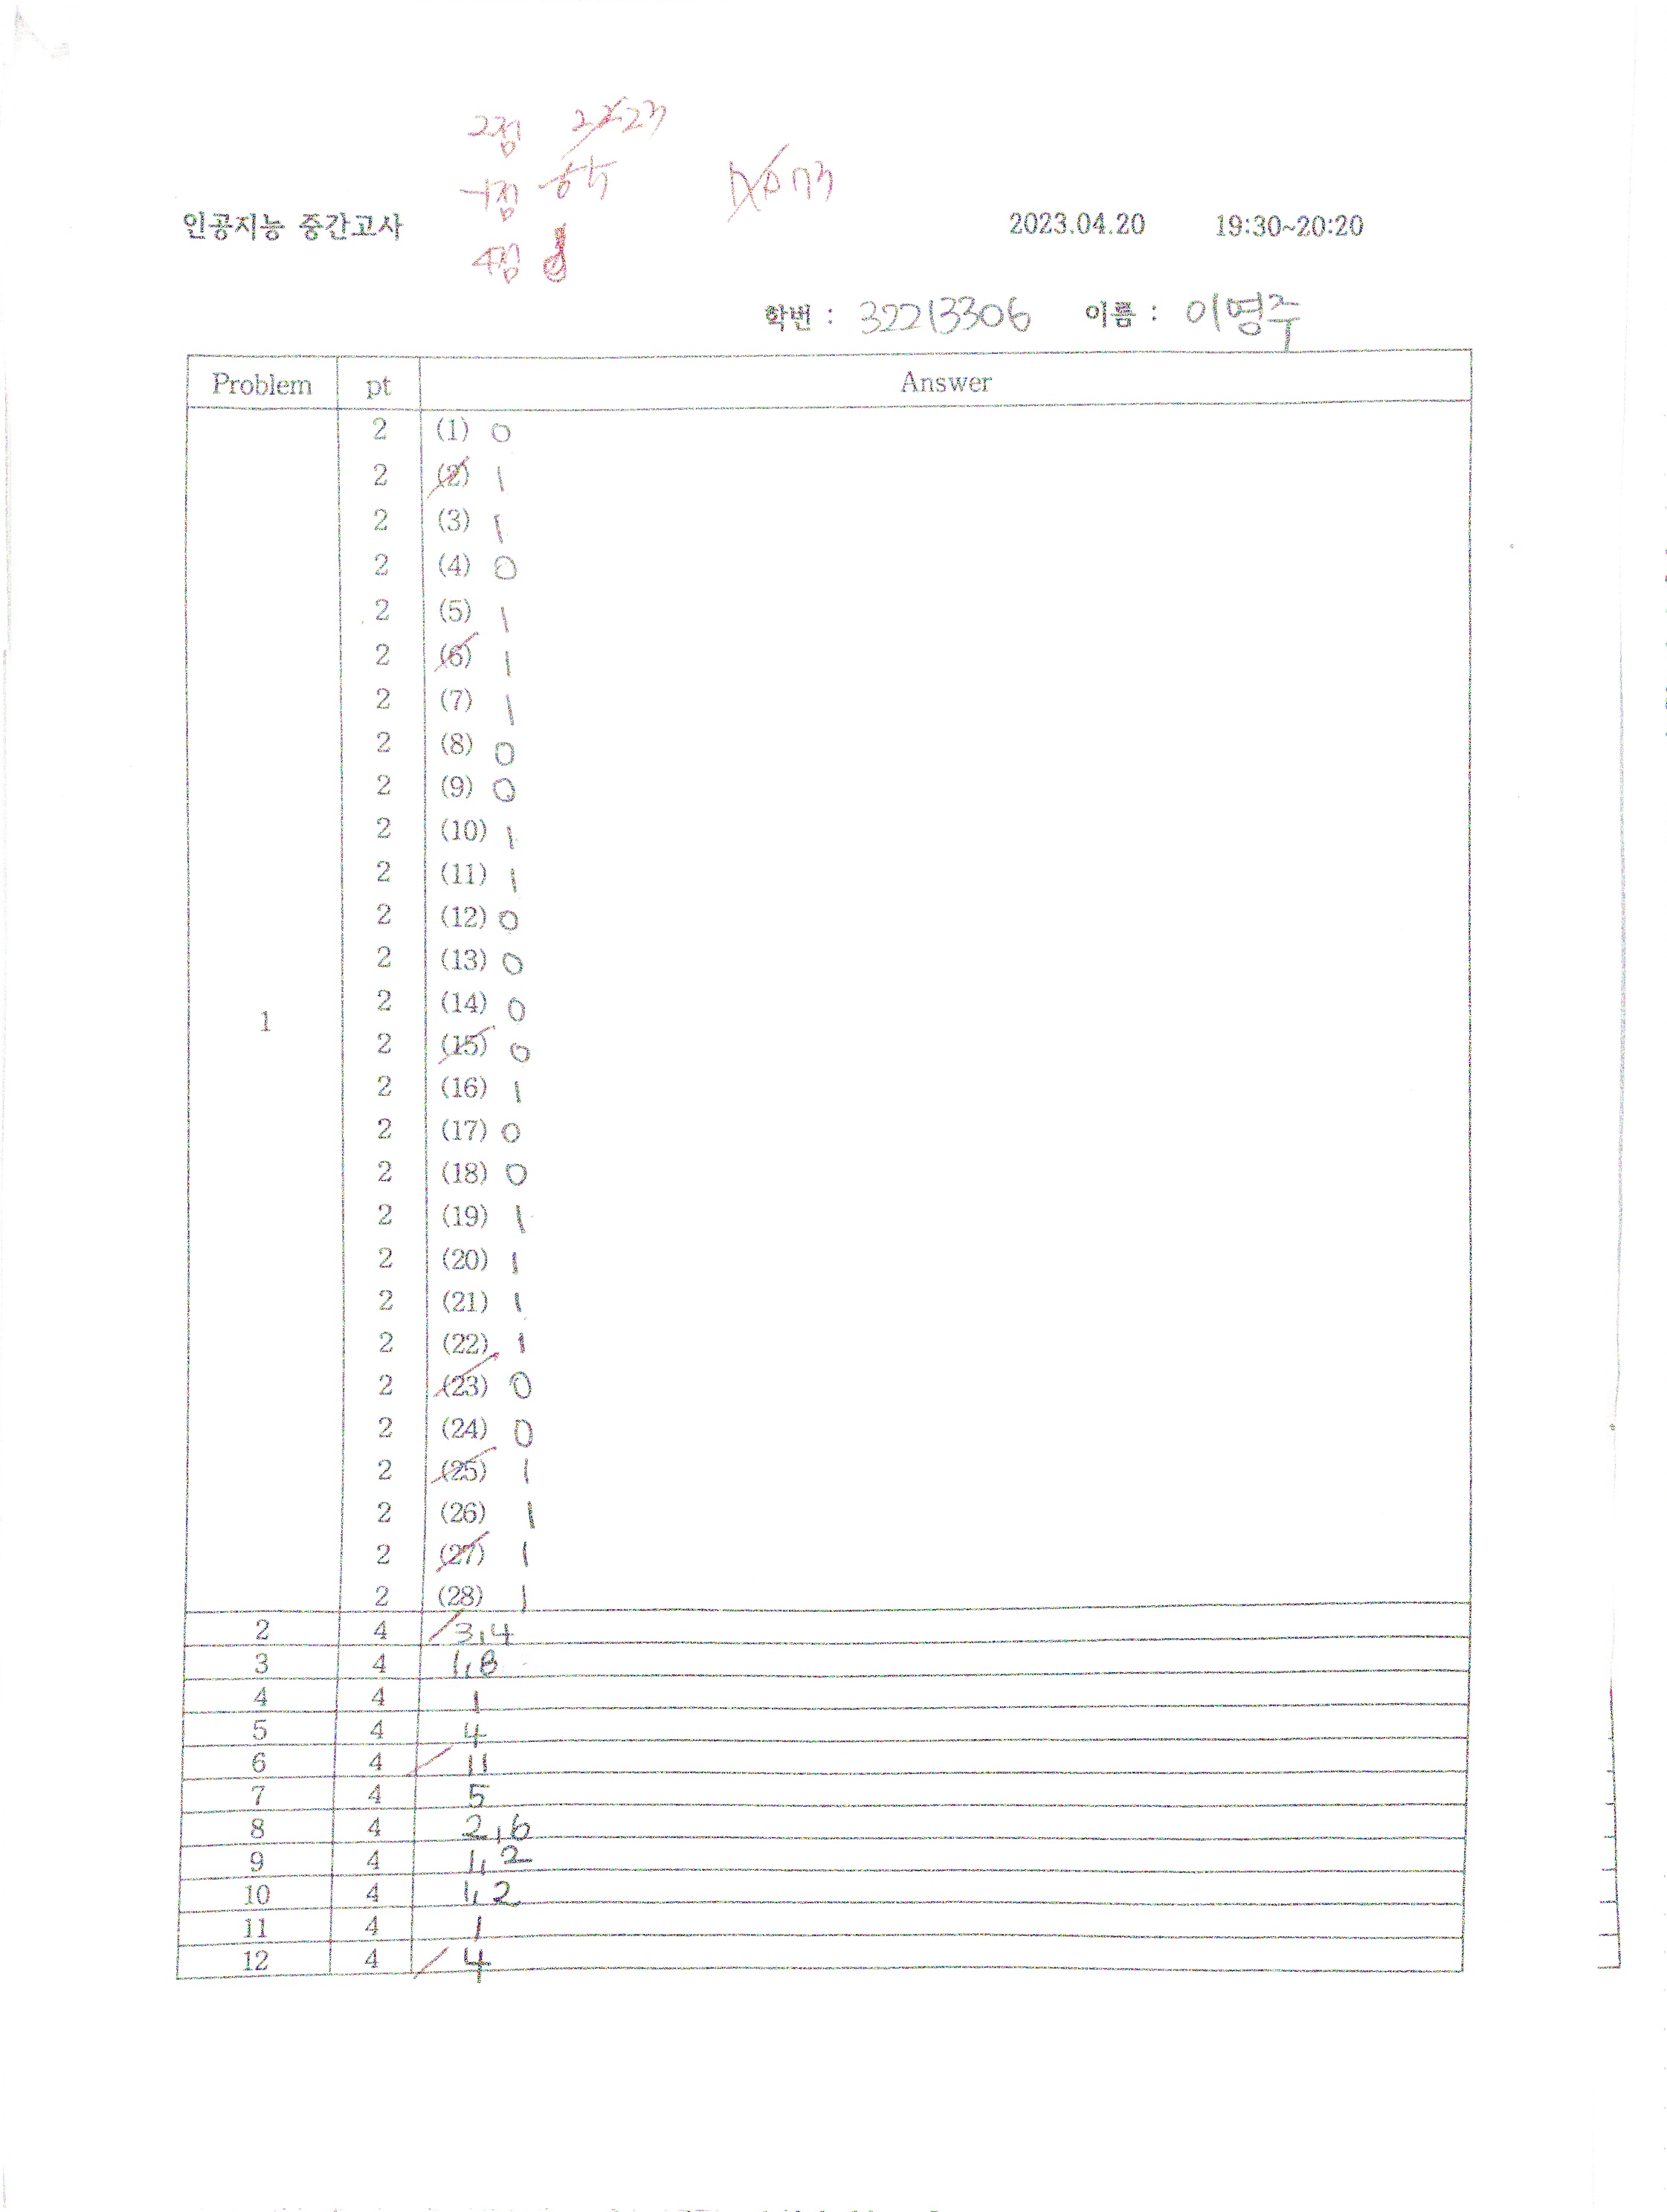 2점
-1점
4점
인공지능 중간고사 2023.04.20 19:30~20:20
학번 : 32213306 이름 : 이영주
Problem pt Answer
2 (1) 0
2 (2) 1
2 (3) 1
2 (4) 0
2 (5) 1
2 (6) 1
2 (7) 1
2 (8) 0
2 (9) 0
2 (10) 1
2 (11) 1
2 (12) 0
2 (13) 0
2 (14) 0
1
2 (15) 0
2 (16) 1
2 (17) 0
2 (18) 0
2 (19) 1
2 (20) 1
2 (21) 1
2 (22) 1
2 (23) 0
2 (24) 0
2 (25) 1
2 (26) 1
2 (27) 1
2 (28) 1
2 4 3,4
3 4 1,8
4 4 1
5 4 4
6 4 11
7 4 5
8 4 2,6
9 4 1,2
10 4 1,2
11 4 1
12 4 4